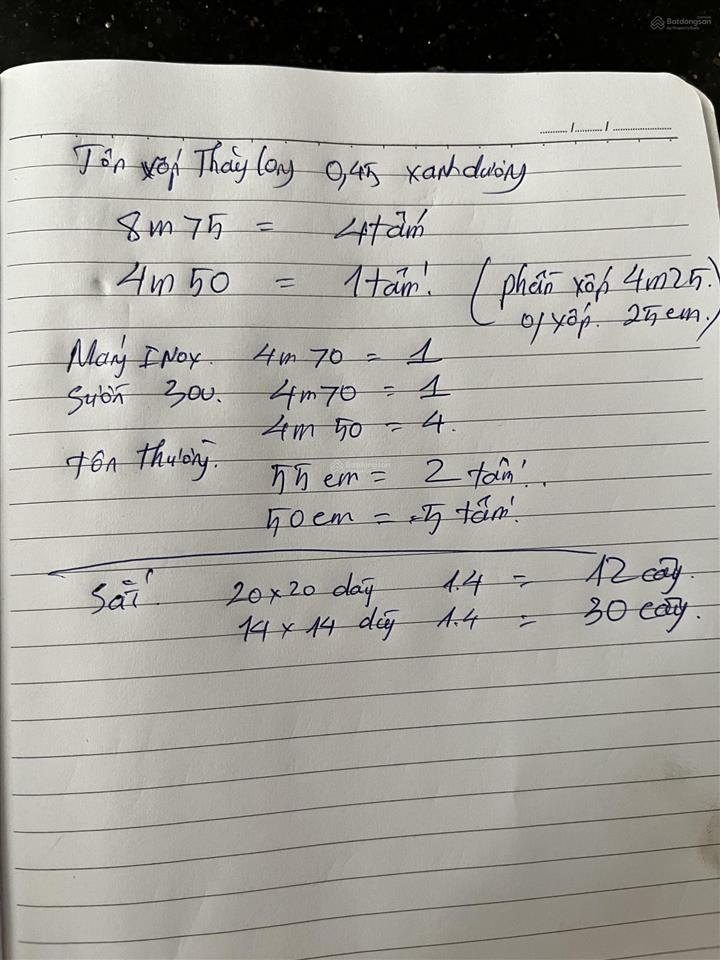 Batdongsan
by PropertyGuru
......../......../................
Tôn xốp Thăng Long 0,45 xanh dương
8m 75 = 4 tấm
4m 50 = 1 tấm. (phần xốp 4m25.
0 xốp. 25 em.)
Máng INox. 4m 70 = 1
Sườn 300. 4m70 = 1
4m 50 = 4.
tôn thường. 55 em = 2 tấm..
50 em = 5 tấm.
Sắt 20 x 20 dày 1.4 = 12 cây.
14 x 14 dày 1.4 = 30 cây.